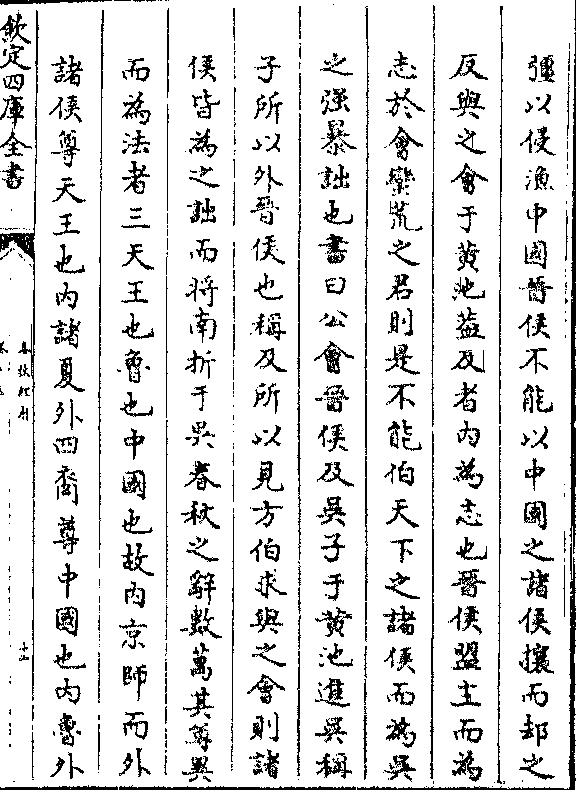 彊以侵漁中國晉侯不能以中國之諸侯攘而却之
反與之會于黄池葢及者内為志也晉侯盟主而為
志於會蠻荒之君則是不能伯天下之諸侯而為吳
之强暴詘也書曰公會晉侯及吳子于黄池進吳稱
子所以外晉侯也稱及所以見方伯求與之會則諸
侯皆為之詘而將南折于吳春秋之辭數萬其尊異
而為法者三天王也魯也中國也故内京師而外
諸侯尊天王也内諸夏外四裔尊中國也内魯外
欽定四庫全書